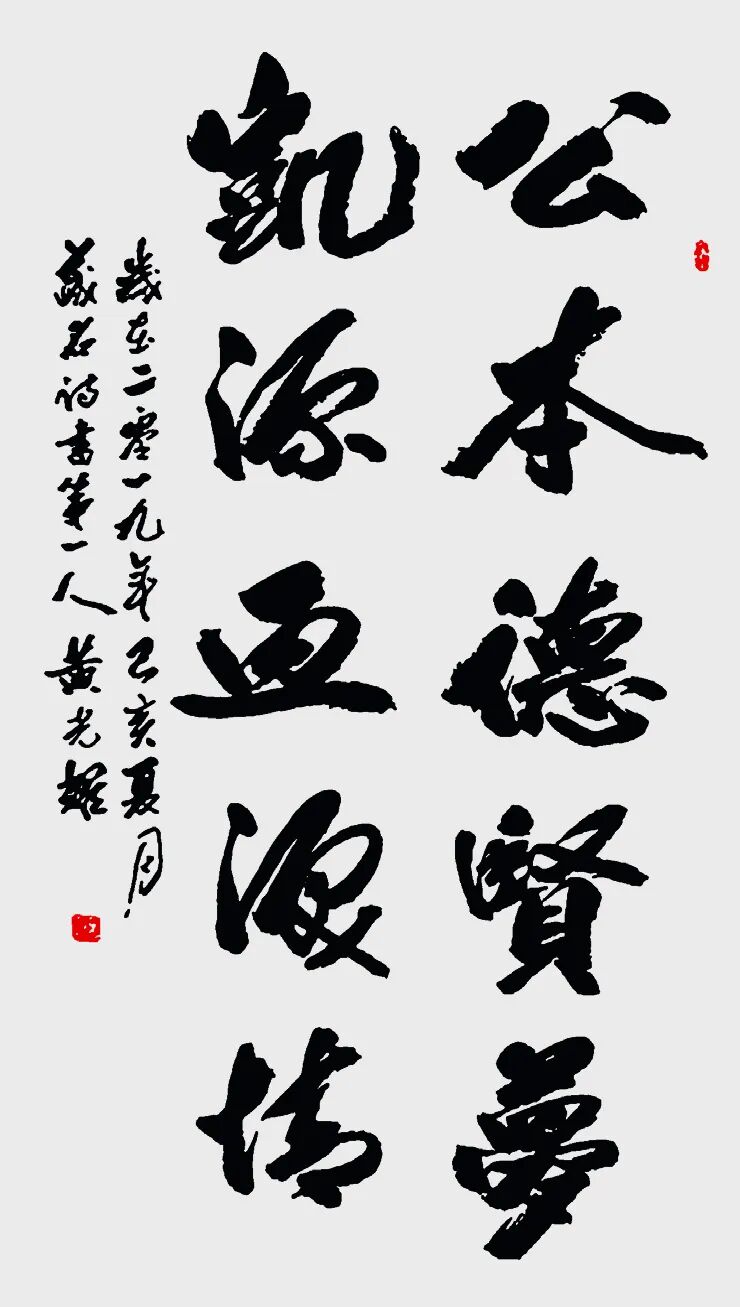 公本德賢夢
凱源亞浪情
歲在二零一九年己亥夏月
藏名诗書第一人黄光耀